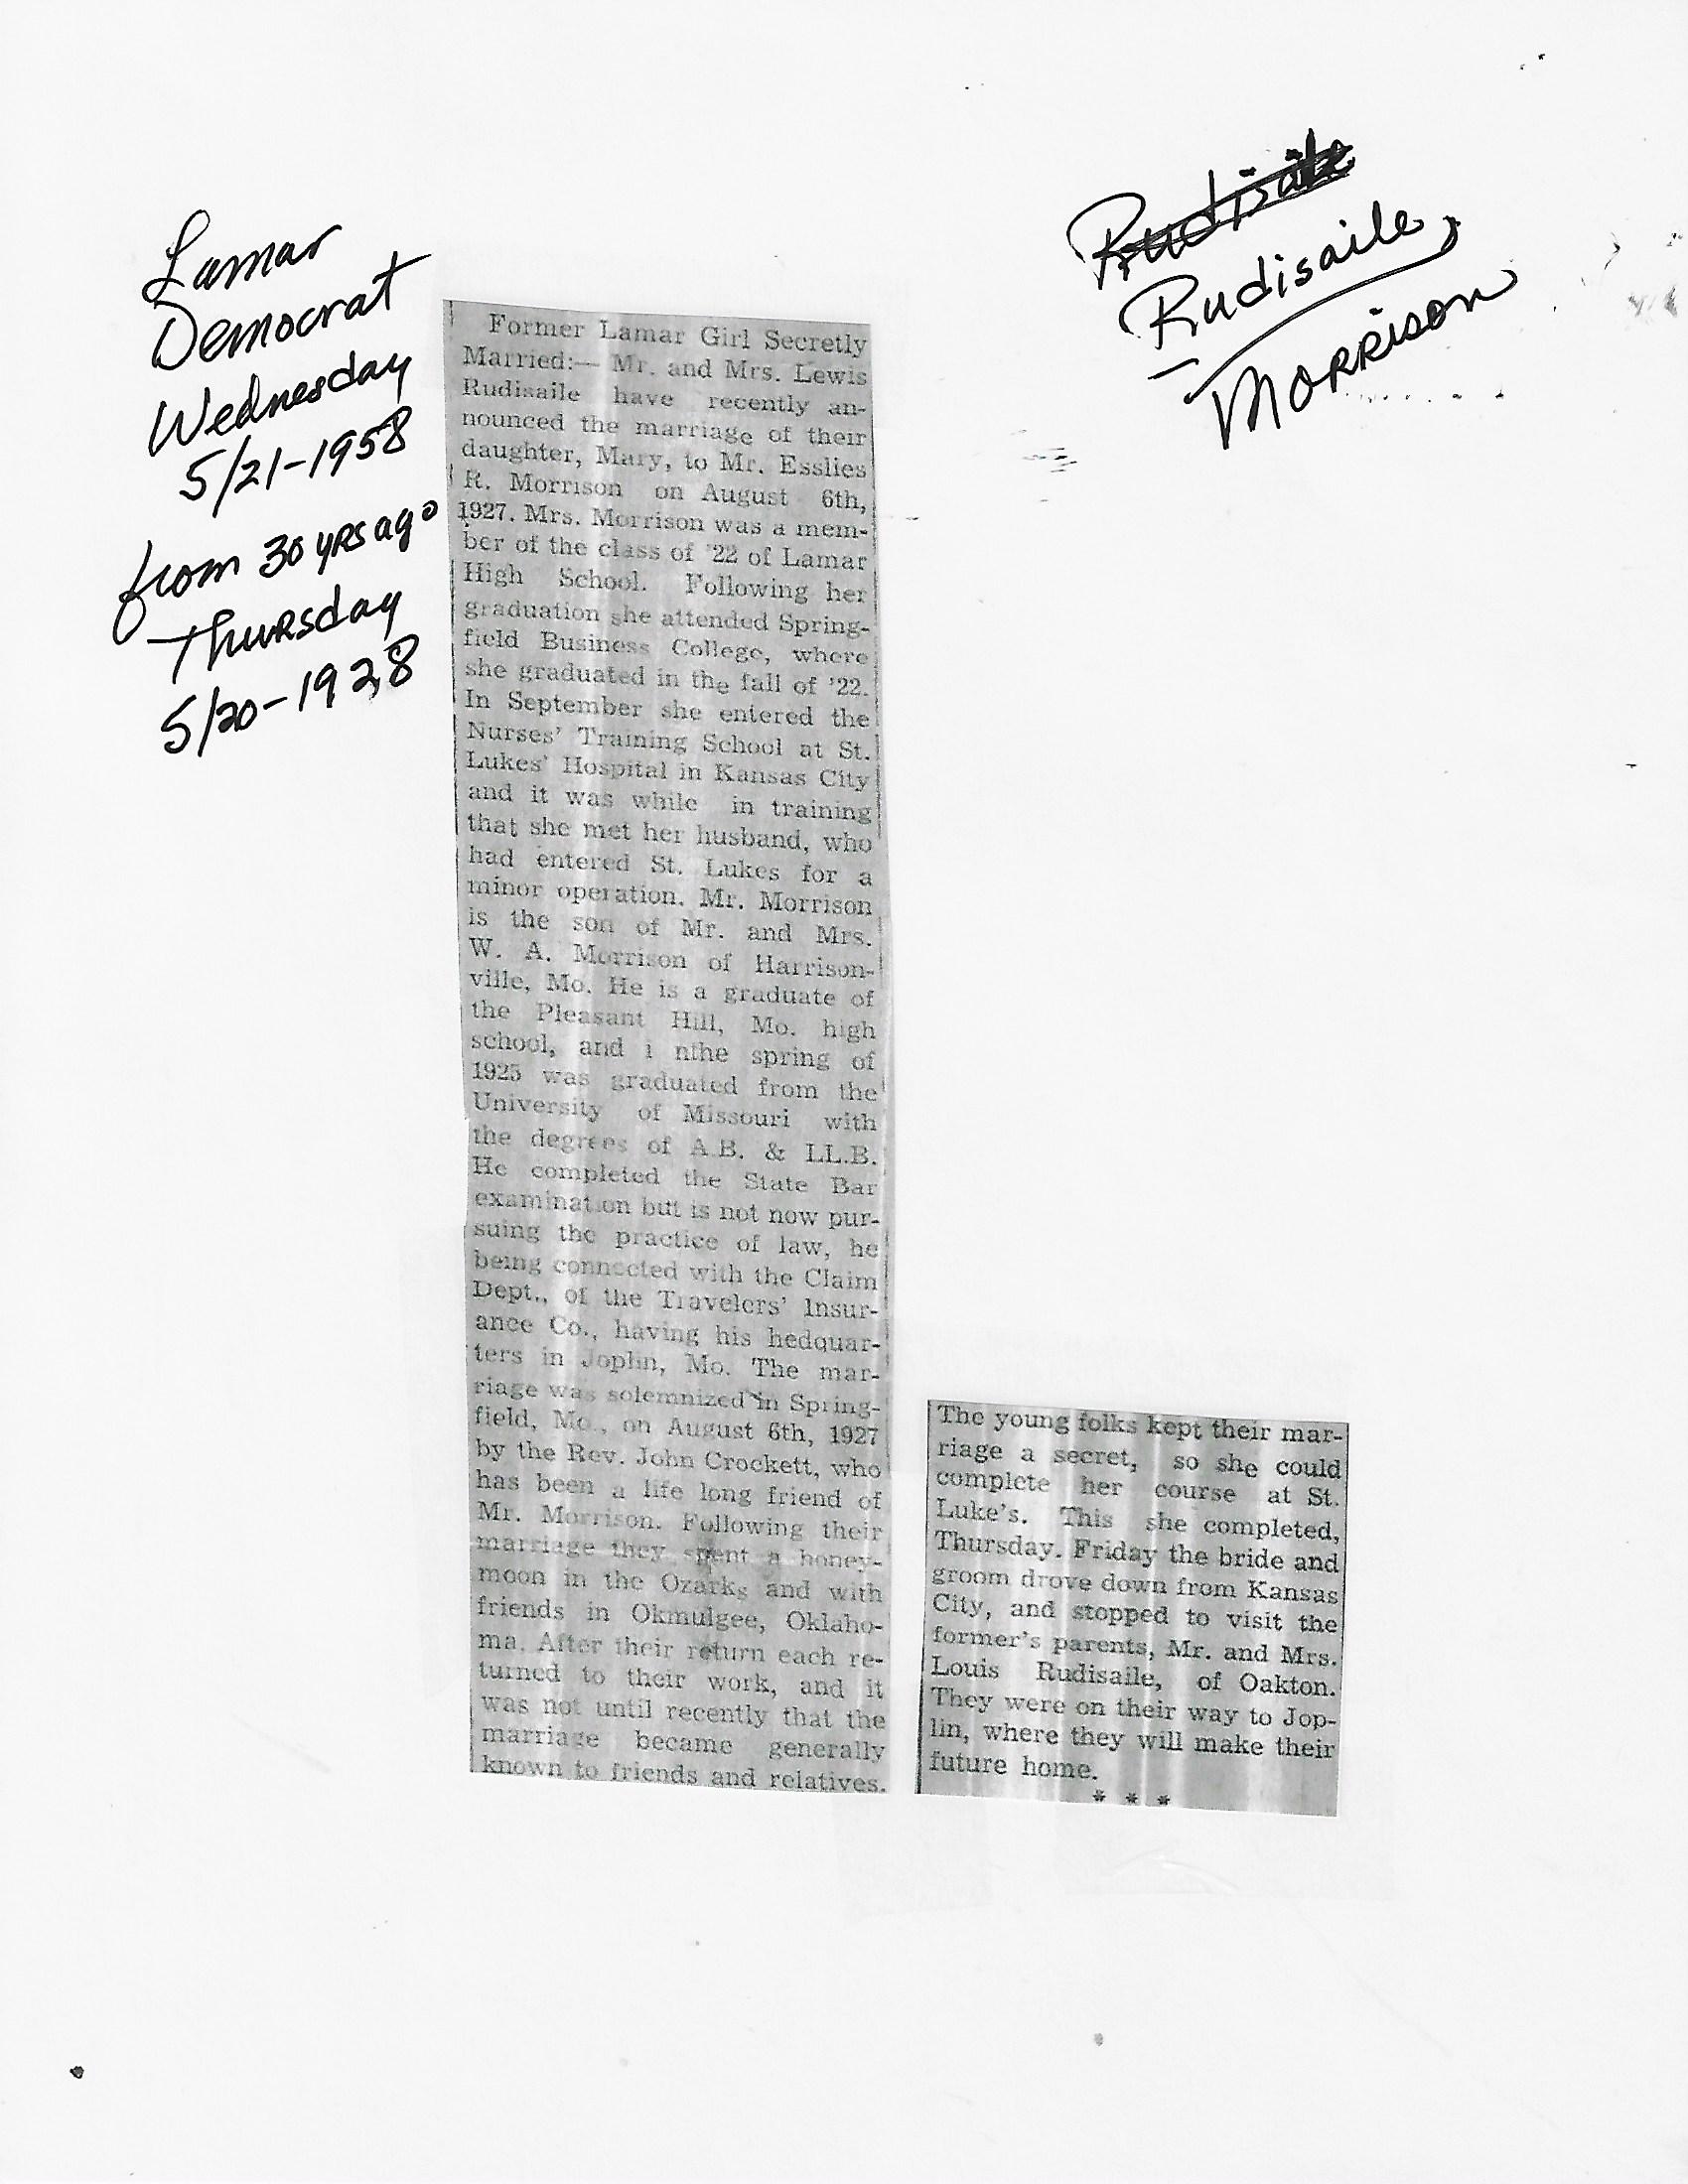 Lamar
Democrat
Wednesday
5/21-1958
from 30 yrs ago
Thursday
5/20-1928
Rudisaile
Rudisaile,
Morrison
Former Lamar Girl Secretly
Married:— Mr. and Mrs. Lewis
Rudisaile have recently an-
nounced the marriage of their
daughter, Mary, to Mr. Esslies
R. Morrison on August 6th,
1927. Mrs. Morrison was a mem-
ber of the class of '22 of Lamar
High School. Following her
graduation she attended Spring-
field Business College, where
she graduated in the fall of '22.
In September she entered the
Nurses' Training School at St.
Lukes' Hospital in Kansas City
and it was while in training
that she met her husband, who
had entered St. Lukes for a
minor operation. Mr. Morrison
is the son of Mr. and Mrs.
W. A. Morrison of Harrison-
ville, Mo. He is a graduate of
the Pleasant Hill, Mo. high
school, and i nthe spring of
1925 was graduated from the
University of Missouri with
the degrees of A.B. & LL.B.
He completed the State Bar
examination but is not now pur-
suing the practice of law, he
being connected with the Claim
Dept., of the Travelers' Insur-
ance Co., having his hedquar-
ters in Joplin, Mo. The mar-
riage was solemnized in Spring-
field, Mo., on August 6th, 1927
by the Rev. John Crockett, who
has been a life long friend of
Mr. Morrison. Following their
marriage they spent a honey-
moon in the Ozarks and with
friends in Okmulgee, Oklaho-
ma. After their return each re-
turned to their work, and it
was not until recently that the
marriage became generally
known to friends and relatives.
The young folks kept their mar-
riage a secret, so she could
complete her course at St.
Luke's. This she completed,
Thursday. Friday the bride and
groom drove down from Kansas
City, and stopped to visit the
former's parents, Mr. and Mrs.
Louis Rudisaile, of Oakton.
They were on their way to Jop-
lin, where they will make their
future home.
* * *